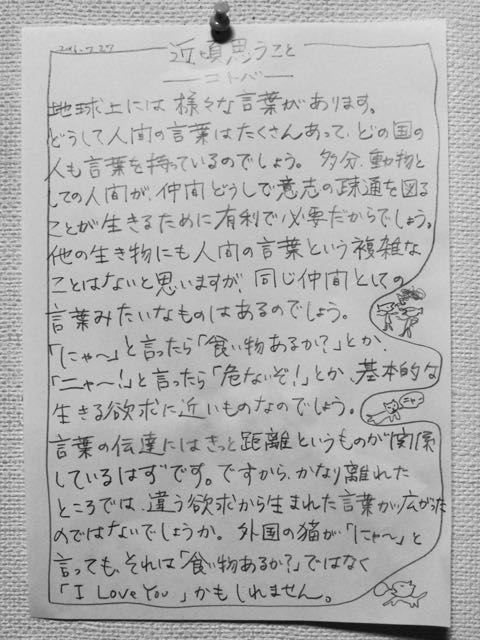 2016.7.27
近頃思うこと
コトバ
地球上には様々な言葉があります。
どうして人間の言葉はたくさんあって、どの国の
人も言葉を持っているのでしょう。多分、動物と
しての人間が、仲間どうしで意志の疎通を図る
ことが生きるために有利で必要だからでしょう。
他の生き物にも人間の言葉という複雑な
ことはないと思いますが、同じ仲間としての
言葉みたいなものはあるのでしょう。
「にゃ〜」と言ったら「食い物あるか?」とか、
「ニャ〜!」と言ったら「危ないぞ!」とか、基本的な
生きる欲求に近いものなのでしょう。
ニャン
言葉の伝達にはきっと距離というものが関係
しているはずです。ですから、かなり離れた
ところでは、違う欲求から生まれた言葉が広がった
のではないでしょうか。外国の猫が「にゃ〜」と
言っても、それは「食い物あるか?」ではなく
「I Love You」かもしれません。